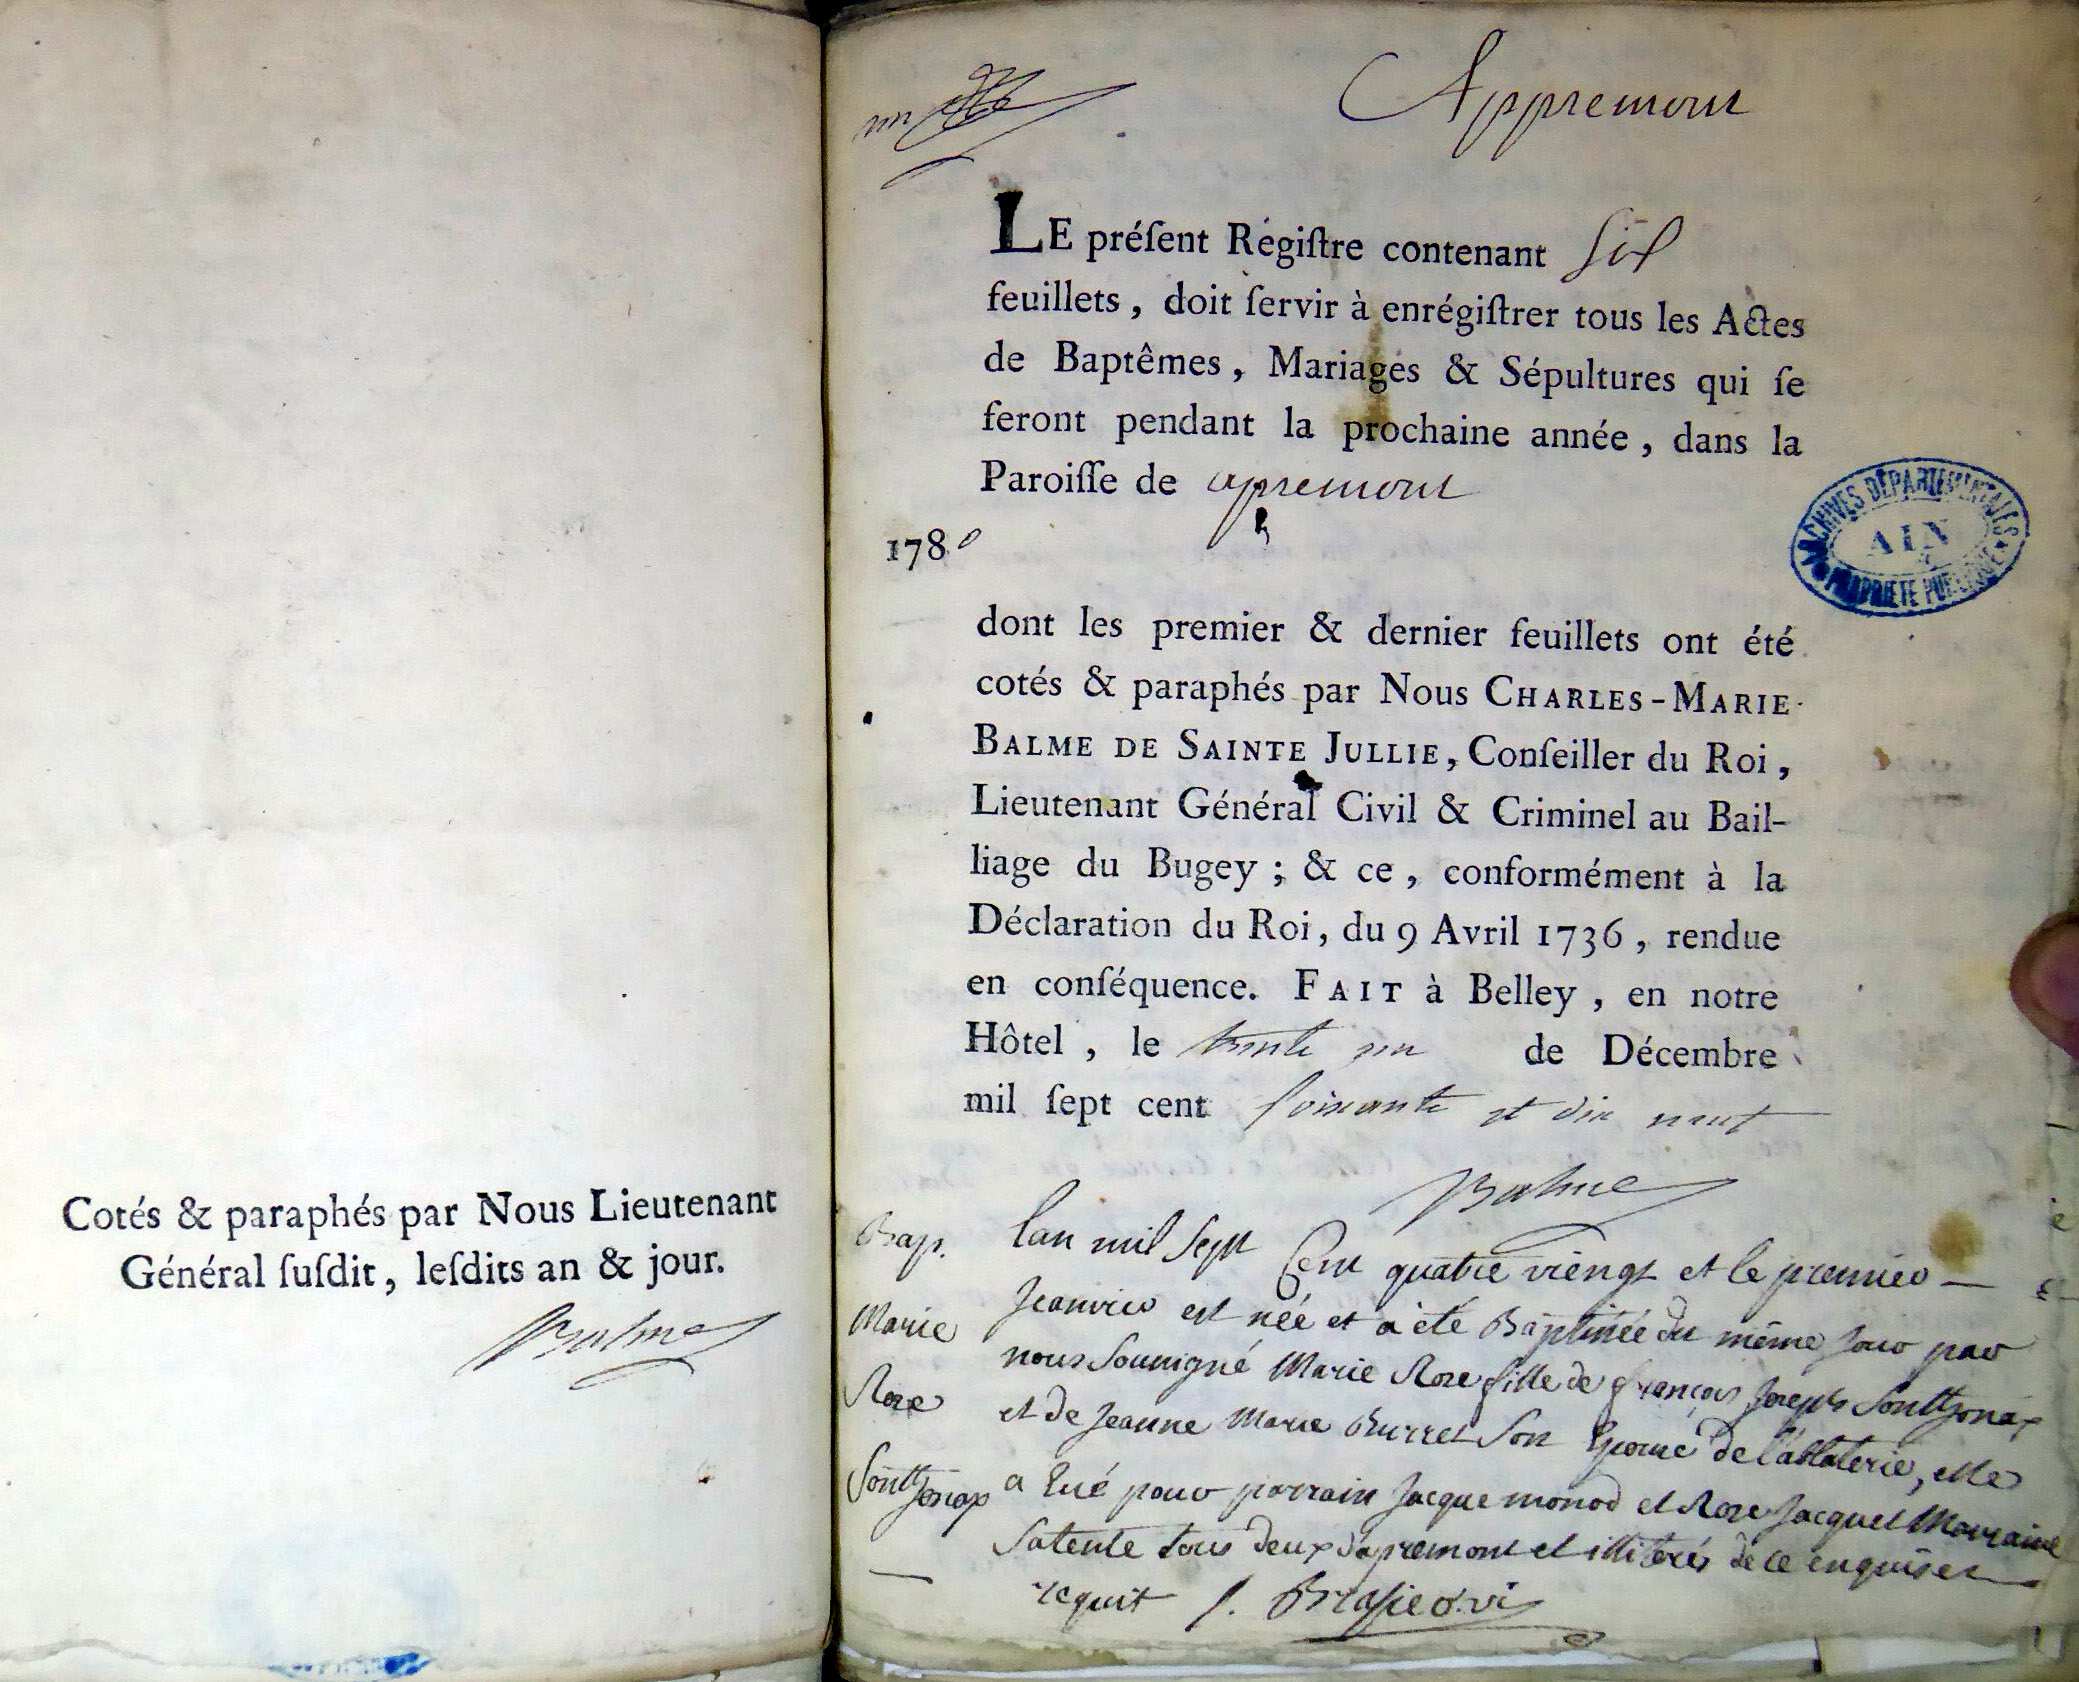 Cotés & paraphés par Nous Lieutenant
Général ſuſdit, leſdits an & jour.
Balme
un
Appremont
LE préſent Régiſtre contenant six
feuillets, doit ſervir à enrégiſtrer tous les Actes
de Baptêmes, Mariages & Sépultures qui ſe
feront pendant la prochaine année, dans la
Paroiſſe de apremont
1780
ARCHIVES DÉPARTEMENTALES
AIN
PROPRIÉTÉ PUBLIQUE
dont les premier & dernier feuillets ont été
cotés & paraphés par Nous CHARLES-MARIE
BALME DE SAINTE JULLIE, Conſeiller du Roi,
Lieutenant Général Civil & Criminel au Bail-
liage du Bugey; & ce, conformément à la
Déclaration du Roi, du 9 Avril 1736, rendue
en conſéquence. FAIT à Belley, en notre
Hôtel, le trente un de Décembre
mil ſept cent soixante et dix neuf
Balme
Bap.
Marie
Rose
Sonthonax
lan mil sept Cent quatre viengt et le premier
Jeanvier est née et a été Baptisée du même jour par
nous soussigné Marie Rose fille de françois Joseph Sonthonax
et de Jeanne Marie Burret son Epouse de l'ablaterie, elle
a Eué pour parrain Jacque monod et Rose Jacquet Marraine
sa tente tous deux d'apremont et illiterés de ce enquis et
requit